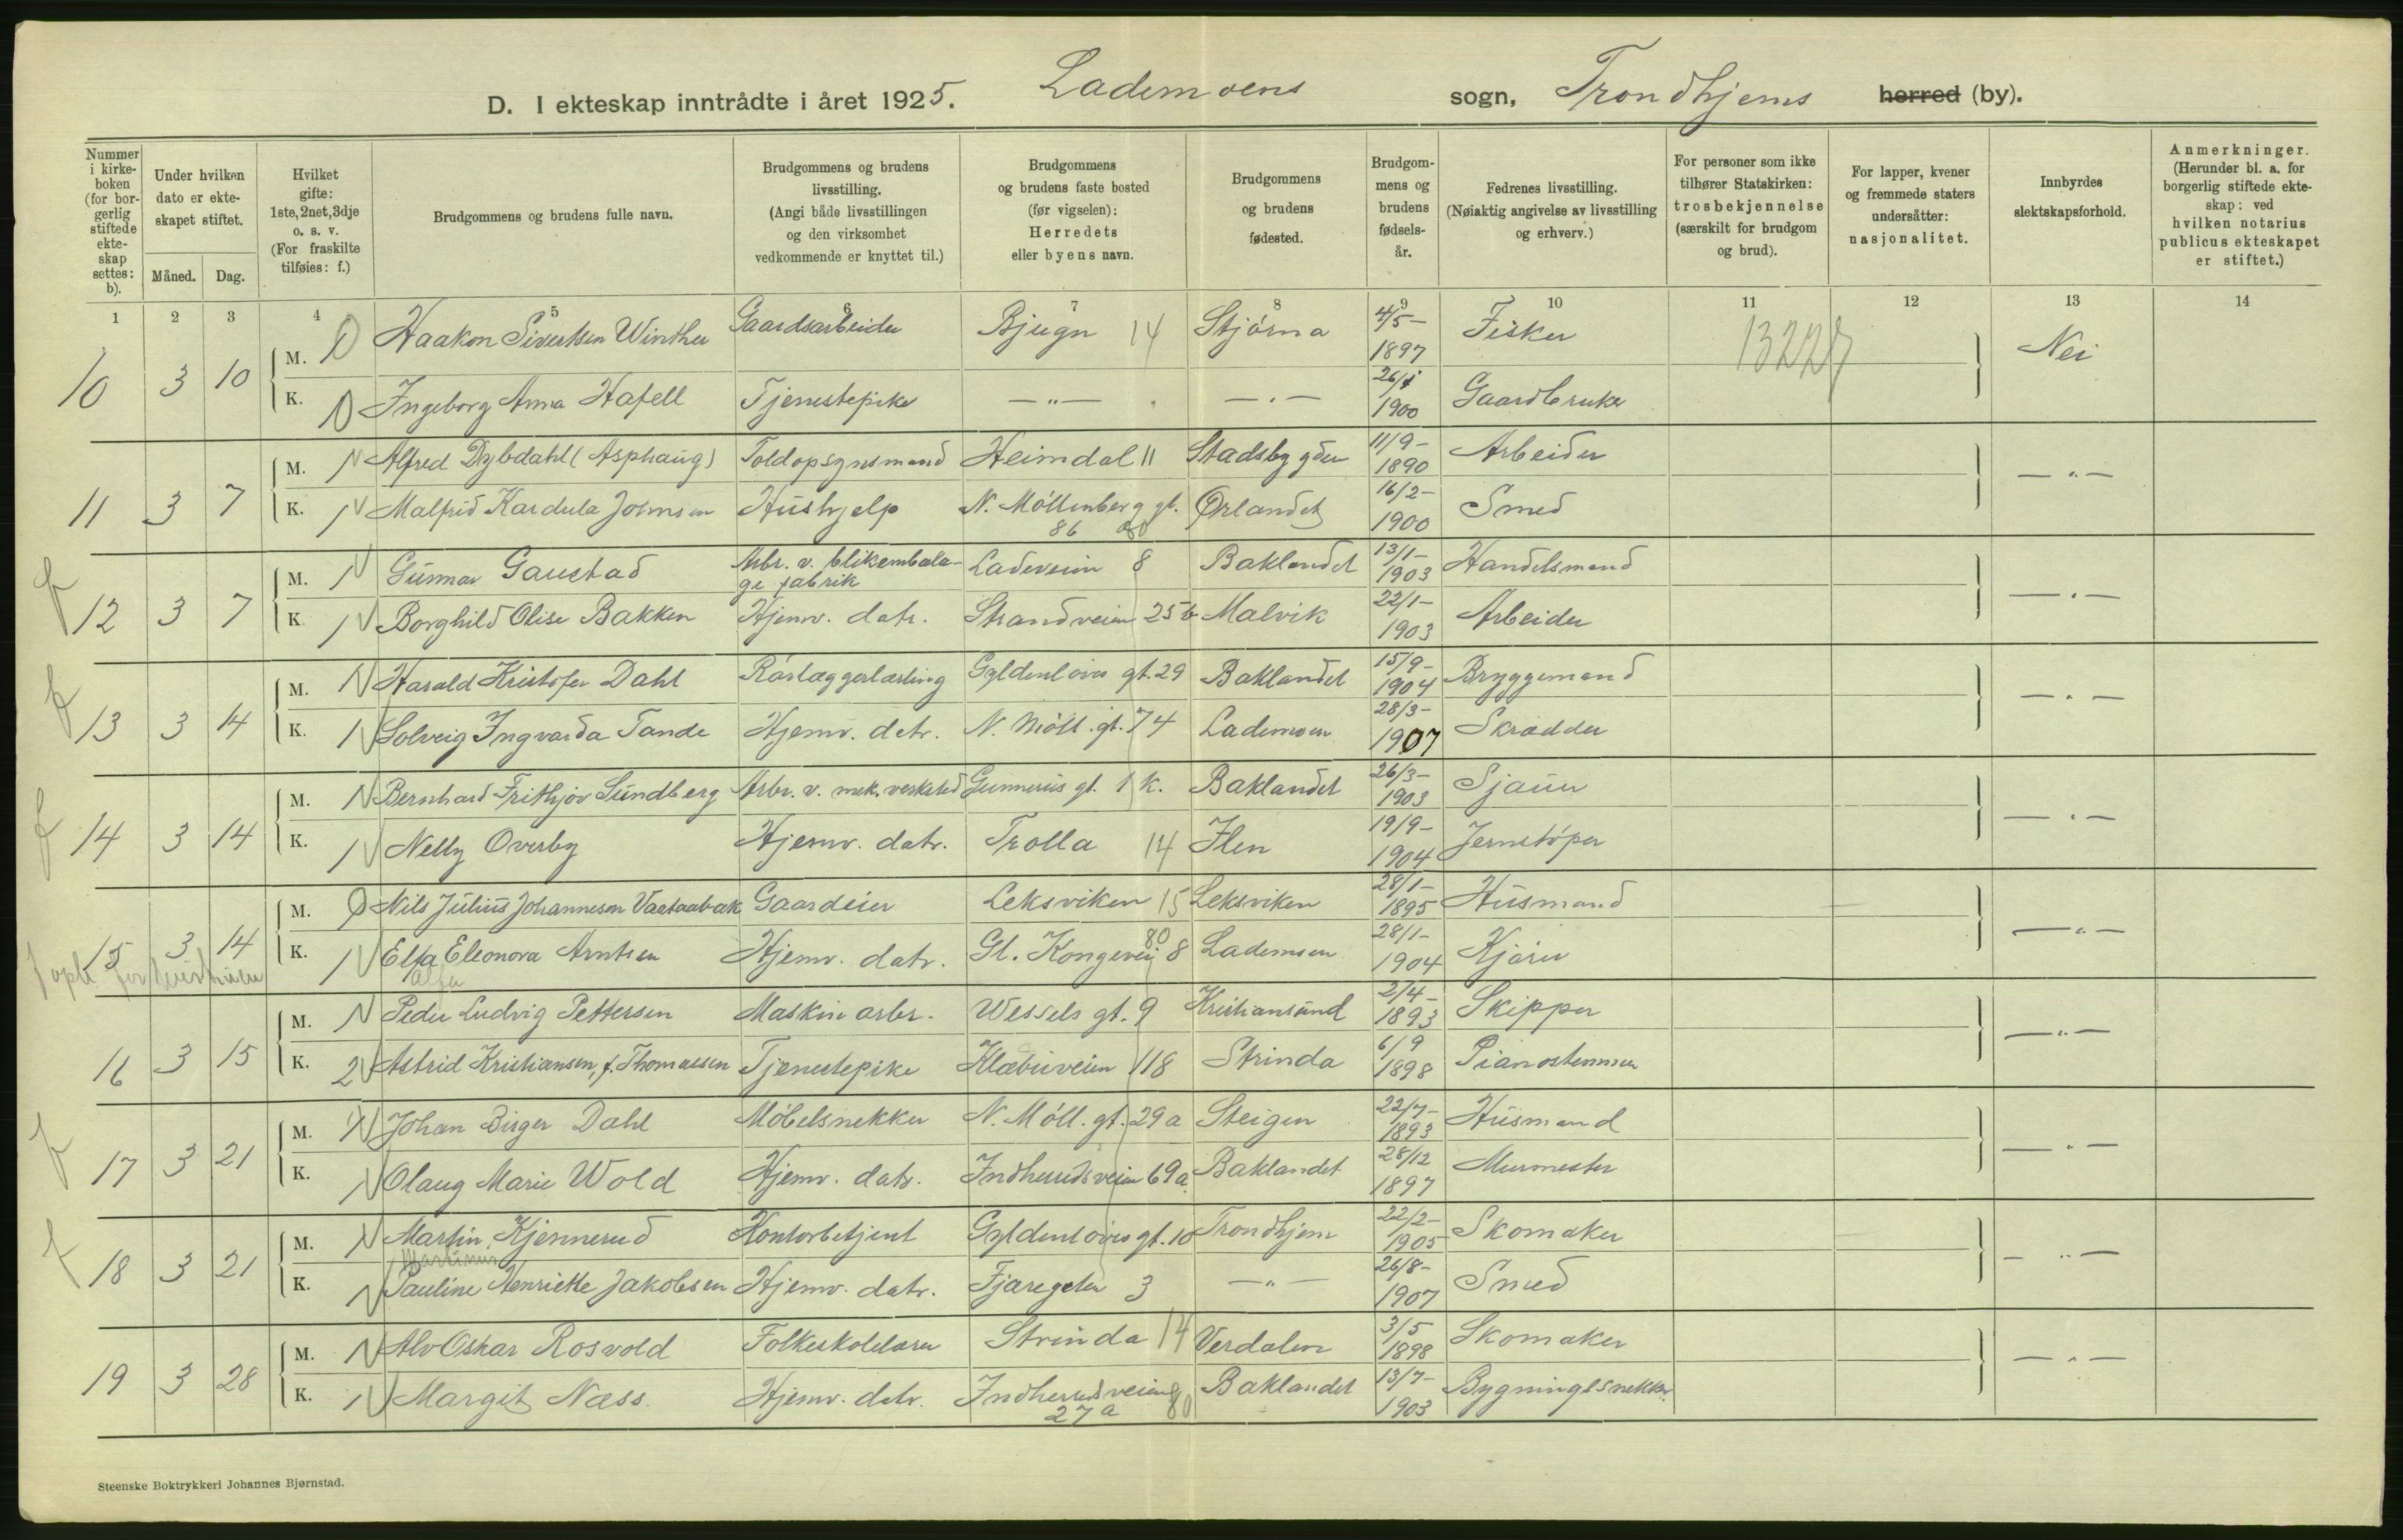 D. I ekteskap inntrådte i året 1925. Lademoens sogn, Trondhjems herred (by).
Nummer i kirkeboken (for borgerlig stiftede ekteskap settes: b).
Under hvilken dato er ekteskapet stiftet.
Måned. Dag.
Hvilket gifte: 1ste, 2net, 3dje o. s. v. (For fraskilte tilføies: f.)
Brudgommens og brudens fulle navn.
Brudgommens og brudens livsstilling. (Angi både livsstillingen og den virksomhet vedkommende er knyttet til.)
Brudgommens og brudens faste bosted (før vigselen): Herredets eller byens navn.
Brudgommens og brudens fødested.
Brudgommens og brudens fødselsår.
Fedrenes livsstilling. (Nøiaktig angivelse av livsstilling og erhverv.)
For personer som ikke tilhører Statskirken: trosbekjennelse (særskilt for brudgom og brud).
For lapper, kvener og fremmede staters undersåtter: nasjonalitet.
Innbyrdes slektskapsforhold.
Anmerkninger. (Herunder bl. a. for borgerlig stiftede ekteskap: ved hvilken notarius publicus ekteskapet er stiftet.)
1 2 3 4 5 6 7 8 9 10 11 12 13 14
10 3 10 M. 1 Haakon Sivertsen Winther Gaardsarbeider Bjugn 14 Stjørna 4/5- 1897 Fisker 13227 Nei
K. 1 Ingeborg Anna Hafell Tjenestepike —"— —"— 26/1 1900 Gaardbruker
11 3 7 M. 1 Alfred Dybdahl (Asphaug) Toldopsynsmand Heimdal 11 Stadsbygden 11/9- 1890 Arbeider —"—
K. 1 Malfrid Kardula Johnsen Hushjelp N. Møllenberg gt. 86 80 Ørlandet 16/2- 1900 Smed
12 3 7 M. 1 Gunnar Gaustad Arbr. v. blikembalage fabrik Ladeveien 8 Baklandet 13/1- 1903 Handelsmand —"—
K. 1 Borghild Olise Bakken Hjemv. datr. Strandveien 25b Malvik 22/1- 1903 Arbeider
13 3 14 M. 1 Harald Kristofer Dahl Rørlæggerlærling Gyldenløves gt. 29 Baklandet 15/9- 1904 Bryggemand —"—
K. 1 Solveig Ingvarda Tande Hjemv. datr. N. Möll. gt. 74 Lademoen 28/3- 1907 Skrædder
14 3 14 M. 1 Bernhard Frithjov Sundberg Arbr. v. mek. verksted Gunnerus gt. 1 K. Baklandet 26/3- 1903 Sjauer —"—
K. 1 Nelly Overby Hjemv. datr. Trolla 14 Ilen 19/9- 1904 Jernstøper
15 3 14 M. Nils Julius Johannesen Vaataabak Gaardeier Leksviken 15 Leksviken 28/1- 1895 Husmand —"—
K. 1 Elfa Eleonora Arntsen Hjemv. datr. Gl. Kongevei 8 80 Lademoen 28/1- 1904 Kjører
Alfa
16 3 15 M. 1 Peder Ludvig Pettersen Maskinarbr. Wessels gt. 9 Kristiansund 2/4- 1893 Skipper —"—
K. 2 Astrid Kristiansen, f. Thomassen Tjenestepike Klæbuveien 118 Strinda 6/9 1898 Pianostemmer
17 3 21 M. 1 Johan Birger Dahl Møbelsnekker N. Möll. gt. 29a Steigen 22/7- 1893 Husmand —"—
K. 1 Olaug Marie Wold Hjemv. datr. Indherredsveien 69a Baklandet 28/12 1897 Murmester
18 3 21 M. 1 Martin Kjennerud Kontorbetjent Gyldenløves gt. 10 Trondhjem 22/2- 1905 Skomaker —"—
Martinus
K. 1 Pauline Henriette Jakobsen Hjemv. datr. Fjæregaten 3 —"— 26/8- 1907 Smed
19 3 28 M. 1 Alv Oskar Rosvold Folkeskolelærer Strinda 14 Verdalen 3/5 1898 Skomaker —"—
K. 1 Margit Næss. Hjemv. datr. Indherredsveien 27a 80 Baklandet 13/7- 1903 Bygningssnekker.
Steenske Boktrykkeri Johannes Bjørnstad.